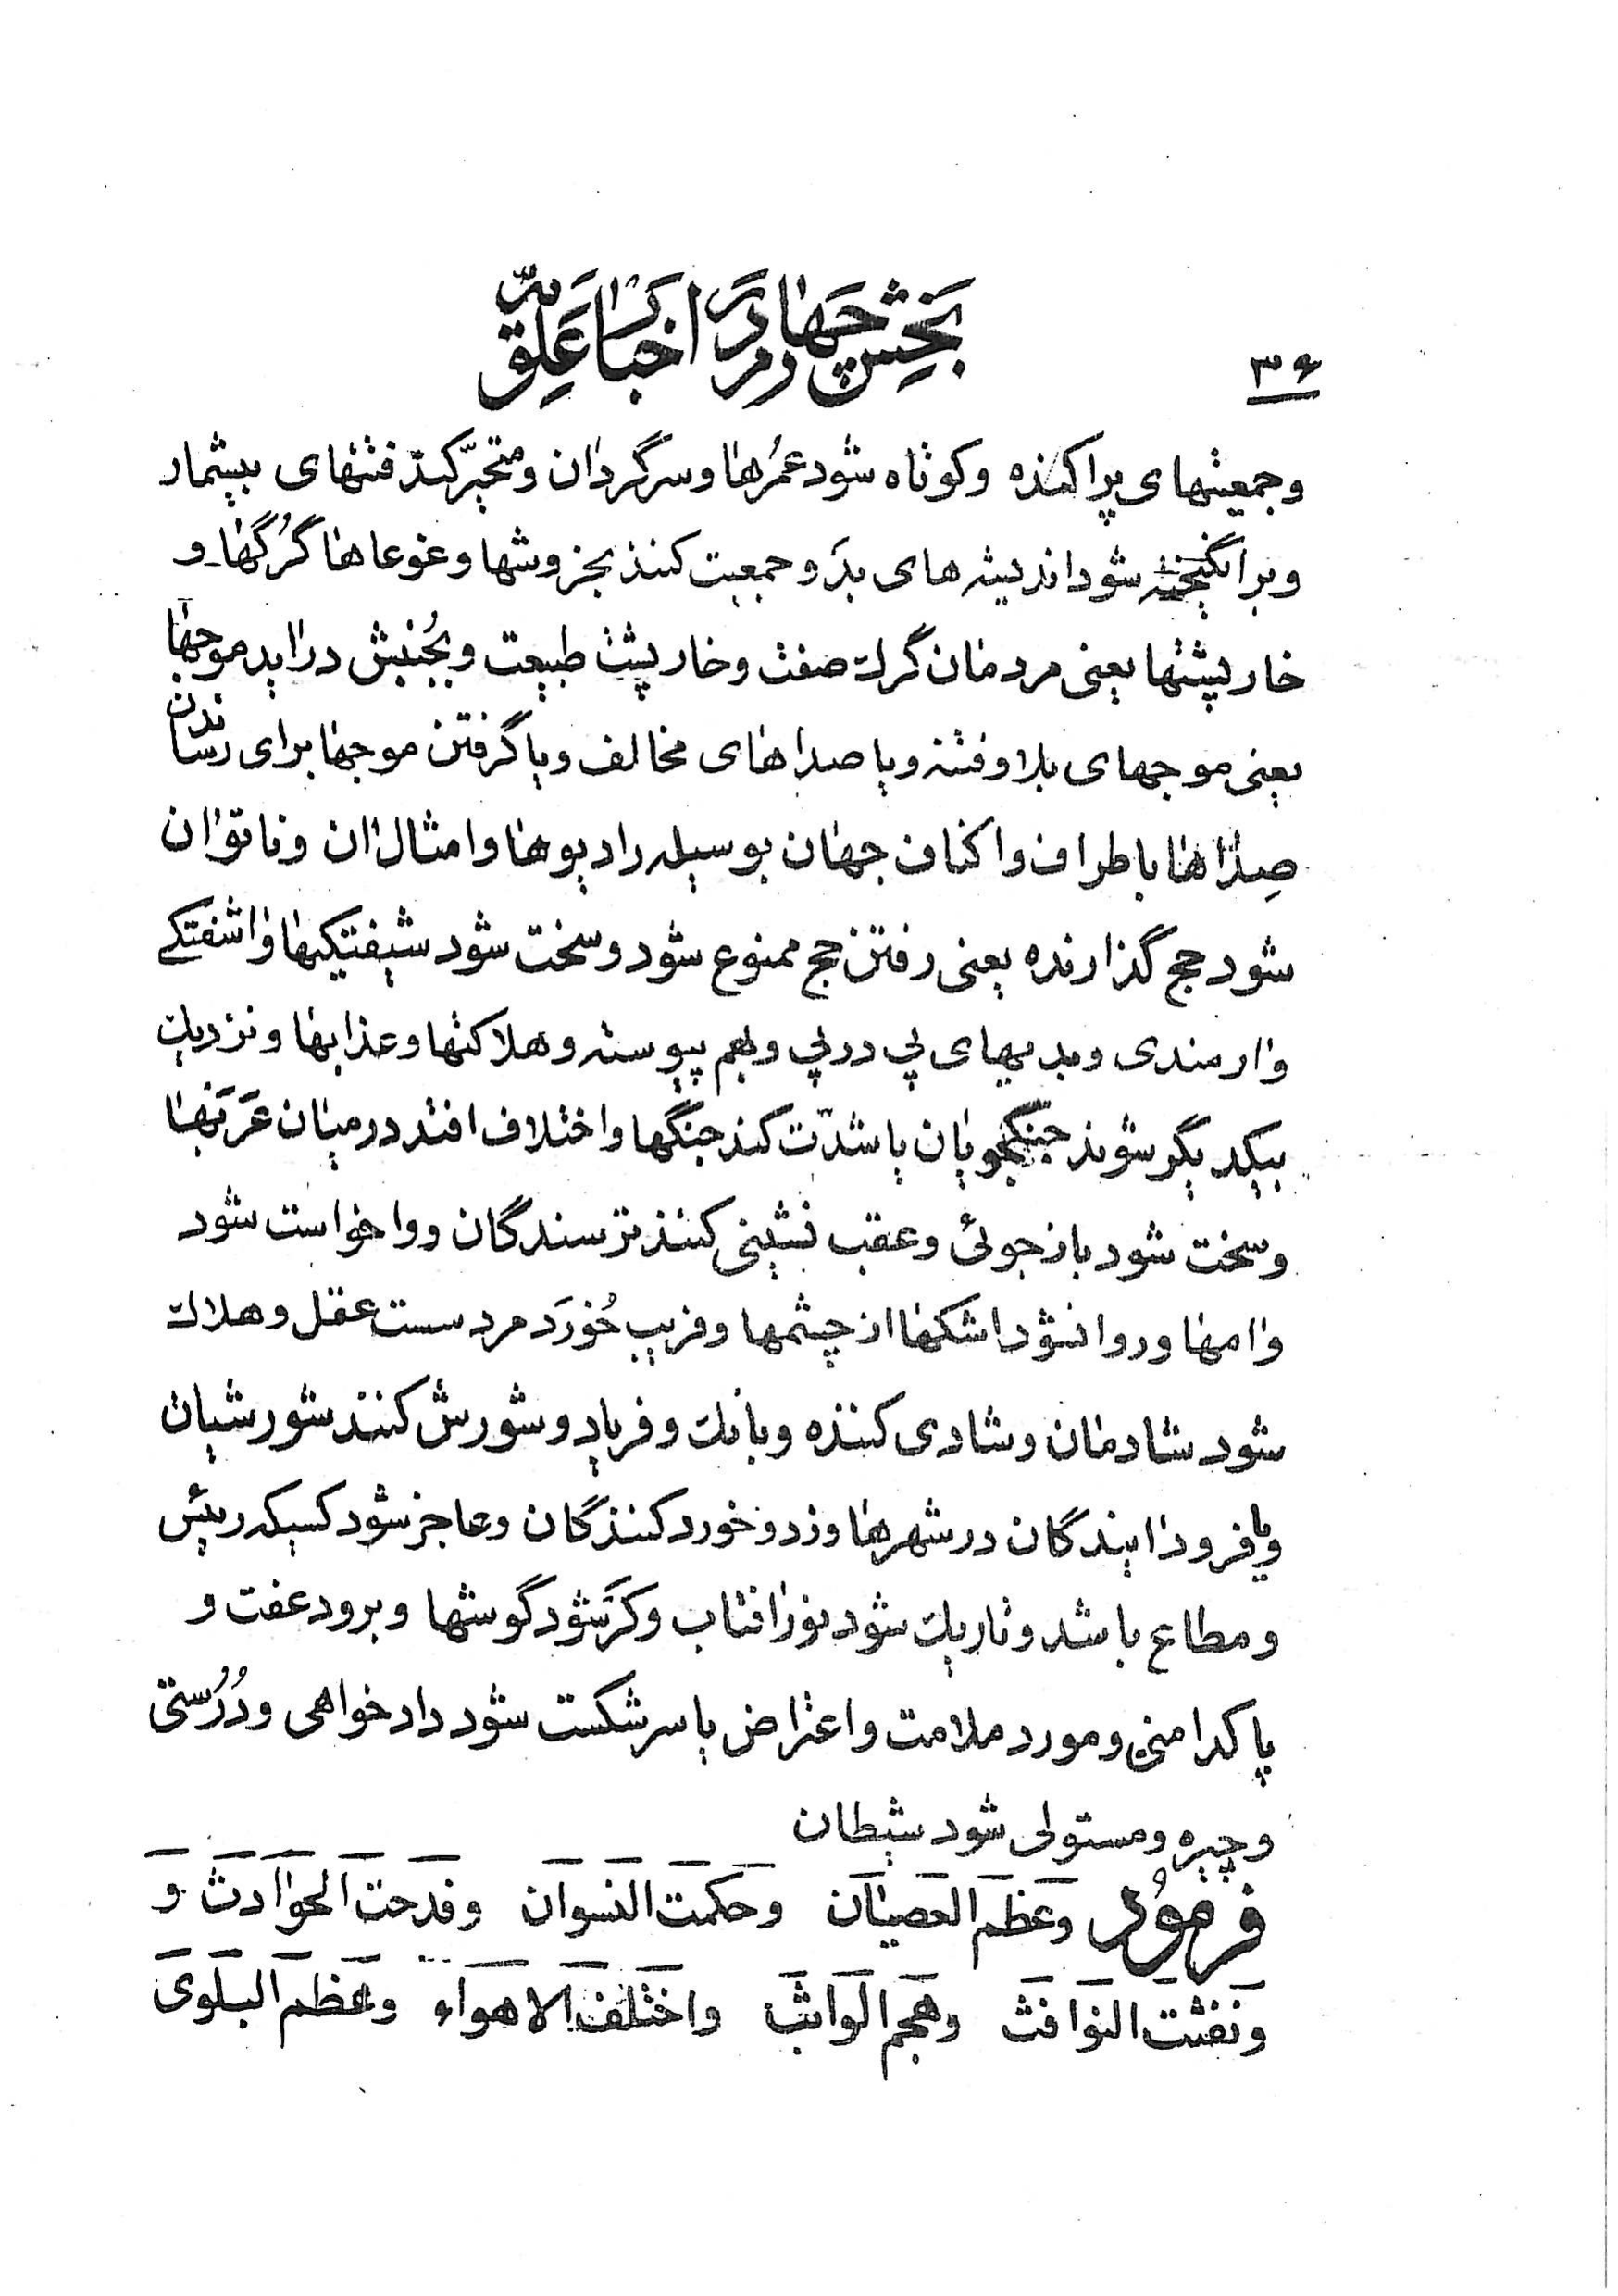 بخش چهارم در اخبار علویّه
۳۶
و جمعیتهای پراکنده و کوتاه شود عمُرها و سرگردان و متحیّر کند فتنهای بیشمار
و برانگیخته شود اندیشه های بدَ و جمعیت کنند بخروشها و غوغاها گرُگها و
خارپشتها یعنی مردمان گرك صفت و خارپشت طبیعت و بجُنبش دراید موجها
یعنی موجهای بلا و فتنه و یا صداهای مخالف و یا گرفتن موجها برای رساندن
صِداها باطراف و اکناف جهان بوسیله رادیوها و امثال ان و ناتوان
شود حج گذارنده یعنی رفتن حج ممنوع شود و سخت شود شیفتیکیها و اشفتکے
و ارمندی و بدیهای پی در پی و بهم پیوسته و هلاکتها و عذابها و نزدیك
بیکدیگر شوند جنگجویان یا شدّت کند جنگها و اختلاف افتد در میان عَرَبها
و سخت شود بازجوئی و عقب نشینی کنند ترسندگان و واخواست شود
وامها و روانشود اشکها از چشمها و فریب خُورَد مرد سست عقل و هلاك
شود شادمان و شادی کننده و بانك و فریاد و شورش کنند شورشیان
و یا فرود ایندگان در شهرها و زد و خورد کنندگان و عاجز شود کسیکه رئیس
و مطاع باشد و تاریك شود نور افتاب و کَر شود گوشها و برود عفت و
پاکدامنی و مورد ملامت و اعتراض یا سرشکست شود دادخواهی و دُرُستی
و چیره و مستولی شود شیطان
فرمُود وَعَظُمَ العصیان وحکمت النسوان وفدحت الحوادث و
ونفثت النوافث وهجم الواثب واختلف الاهواء وعظم البلوی